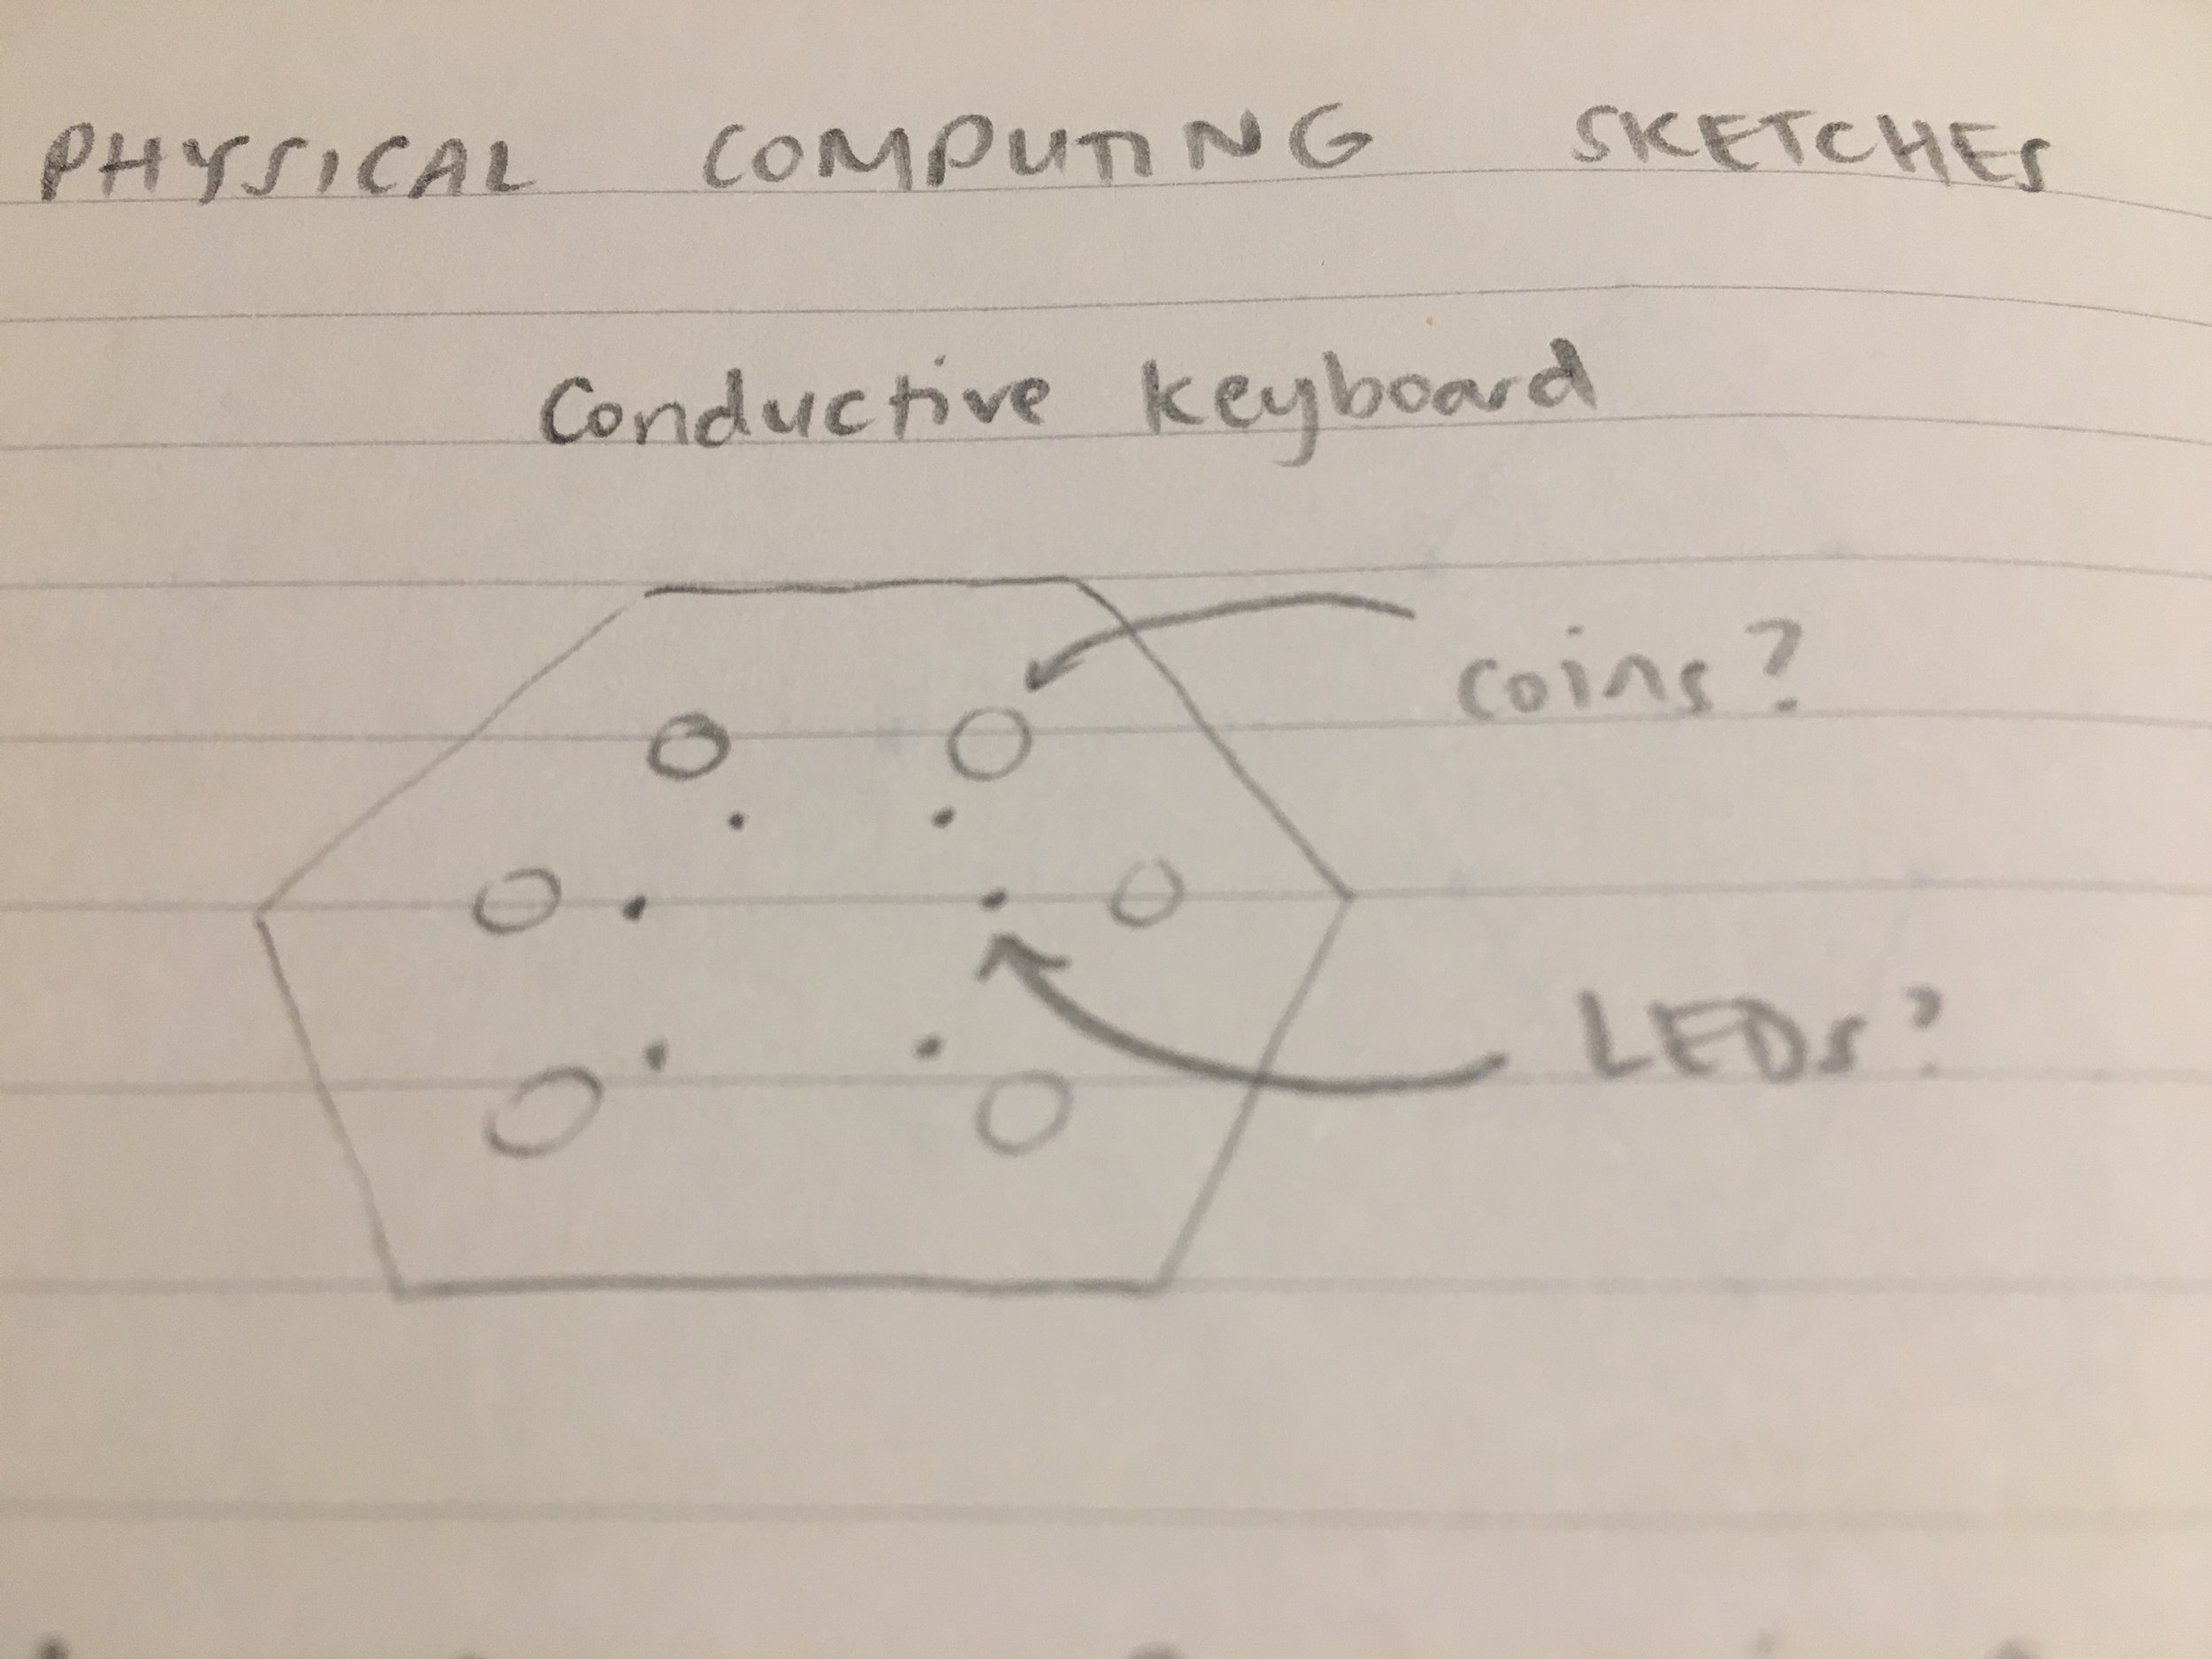 PHYSICAL COMPUTING SKETCHES
Conductive keyboard
coins?
LEDs?